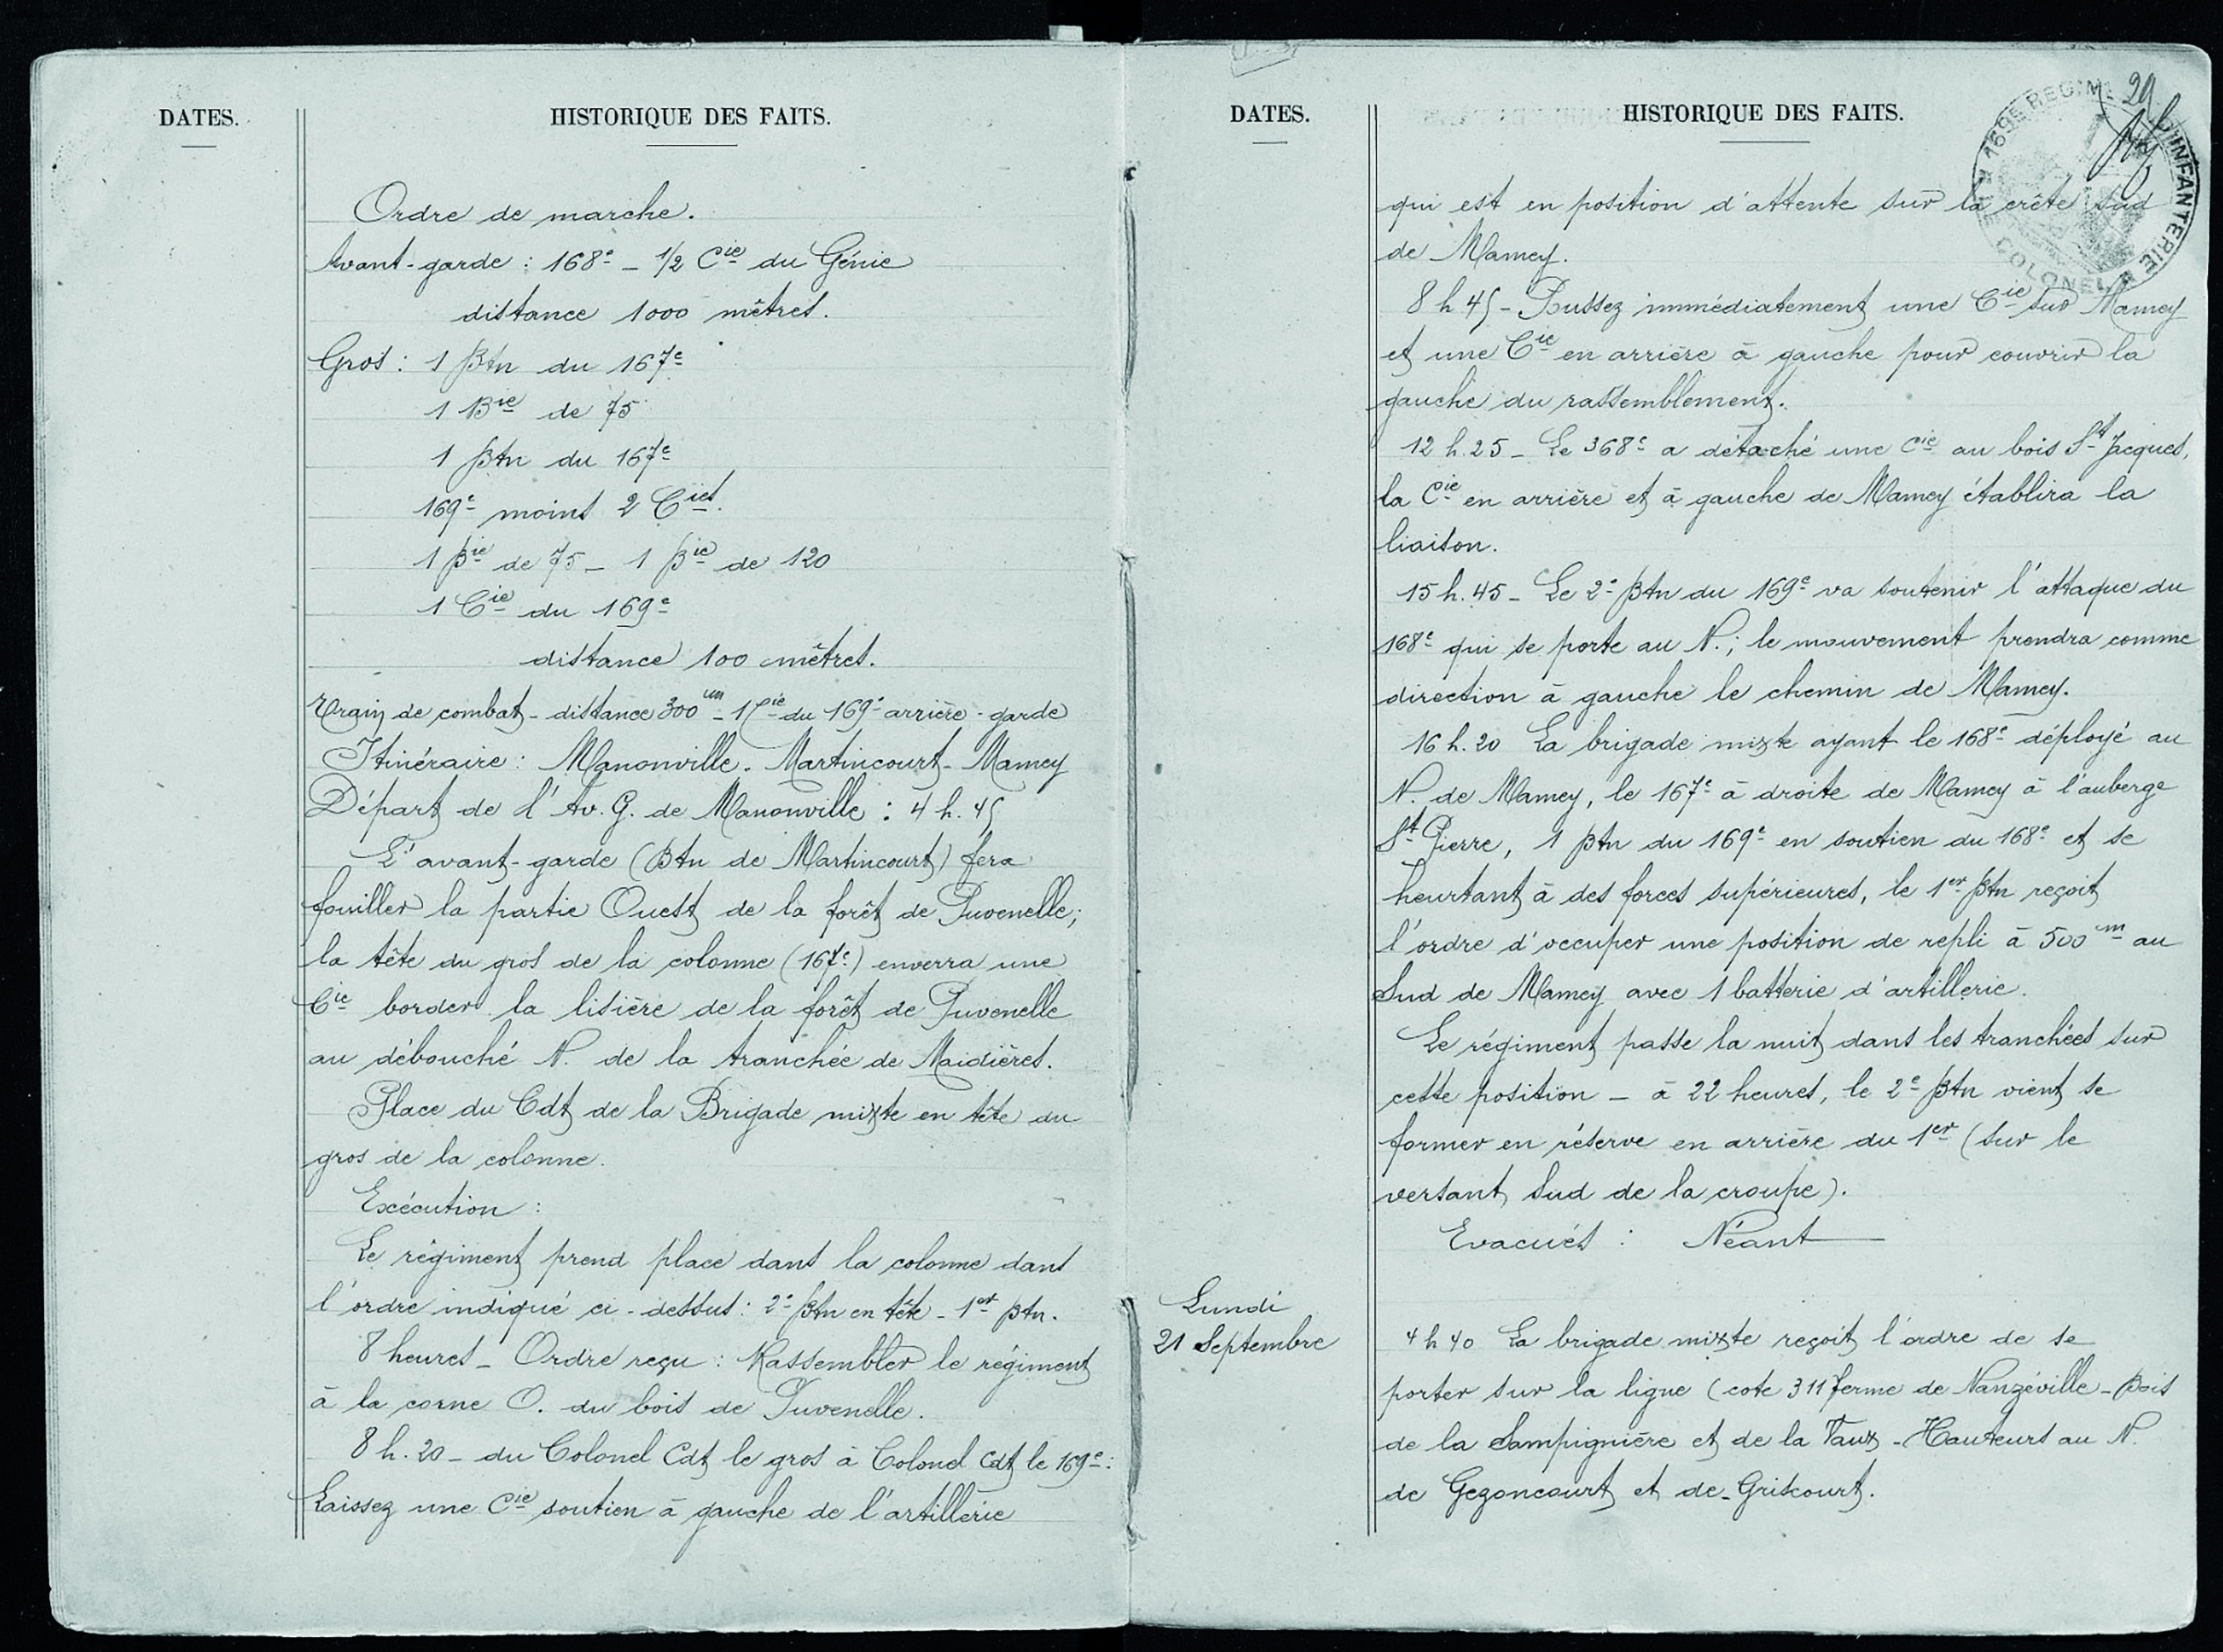 DATES.
HISTORIQUE DES FAITS.
Ordre de marche.
Avant-garde : 168e – 1/2 Cie du Génie
distance 1000 mètres.
Gros : 1 Btn du 167e
1 Bie de 75
1 Btn du 167e
169e moins 2 Cies.
1 Bie de 75 – 1 Bie de 120
1 Cie du 169e
distance 100 mètres.
Train de combat – distance 300m – 1 Cie du 169e arrière-garde
Itinéraire : Manonville - Martincourt - Mamey
Départ de l'Av. G. de Manonville : 4 h. 45
L'avant-garde (Btn de Martincourt) fera
fouiller la partie Ouest de la forêt de Puvenelle ;
la tête du gros de la colonne (167e) enverra une
Cie border la lisière de la forêt de Puvenelle
au débouché N. de la tranchée de Maidières.
Place du Cdt de la Brigade mixte en tête du
gros de la colonne.
Exécution :
Le régiment prend place dans la colonne dans
l'ordre indiqué ci-dessus : 2e Btn en tête – 1er Btn.
8 heures – Ordre reçu : Rassembler le régiment
à la corne O. du bois de Puvenelle.
8 h. 20 – du Colonel Cdt le gros à Colonel Cdt le 169e :
Laissez une Cie soutien à gauche de l'artillerie
DATES.
HISTORIQUE DES FAITS.
29
169E REGIMT D'INFANTERIE
COLONEL
qui est en position d'attente sur la crête Sud
de Mamey.
8 h 45 – Poussez immédiatement une Cie sur Mamey
et une Cie en arrière à gauche pour couvrir la
gauche du rassemblement.
12 h. 25 – Le 368e a détaché une Cie au bois St Jacques,
la Cie en arrière et à gauche de Mamey établira la
liaison.
15 h. 45 – Le 2e Btn du 169e va soutenir l'attaque du
168e qui se porte au N. ; le mouvement prendra comme
direction à gauche le chemin de Mamey.
16 h. 20 La brigade mixte ayant le 168e déployé au
N. de Mamey, le 167e à droite de Mamey à l'auberge
St Pierre, 1 Btn du 169e en soutien du 168e et se
heurtant à des forces supérieures, le 1er Btn reçoit
l'ordre d'occuper une position de repli à 500m au
Sud de Mamey avec 1 batterie d'artillerie.
Le régiment passe la nuit dans les tranchées sur
cette position – à 22 heures, le 2e Btn vient se
former en réserve en arrière du 1er (sur le
versant Sud de la croupe).
Evacués : Néant
Lundi
21 Septembre
4 h 40 La brigade mixte reçoit l'ordre de se
porter sur la ligne (cote 311 ferme de Nanzéville – Bois
de la Sampignière et de la Vaux – Hauteurs au N.
de Gezoncourt et de Griscourt.